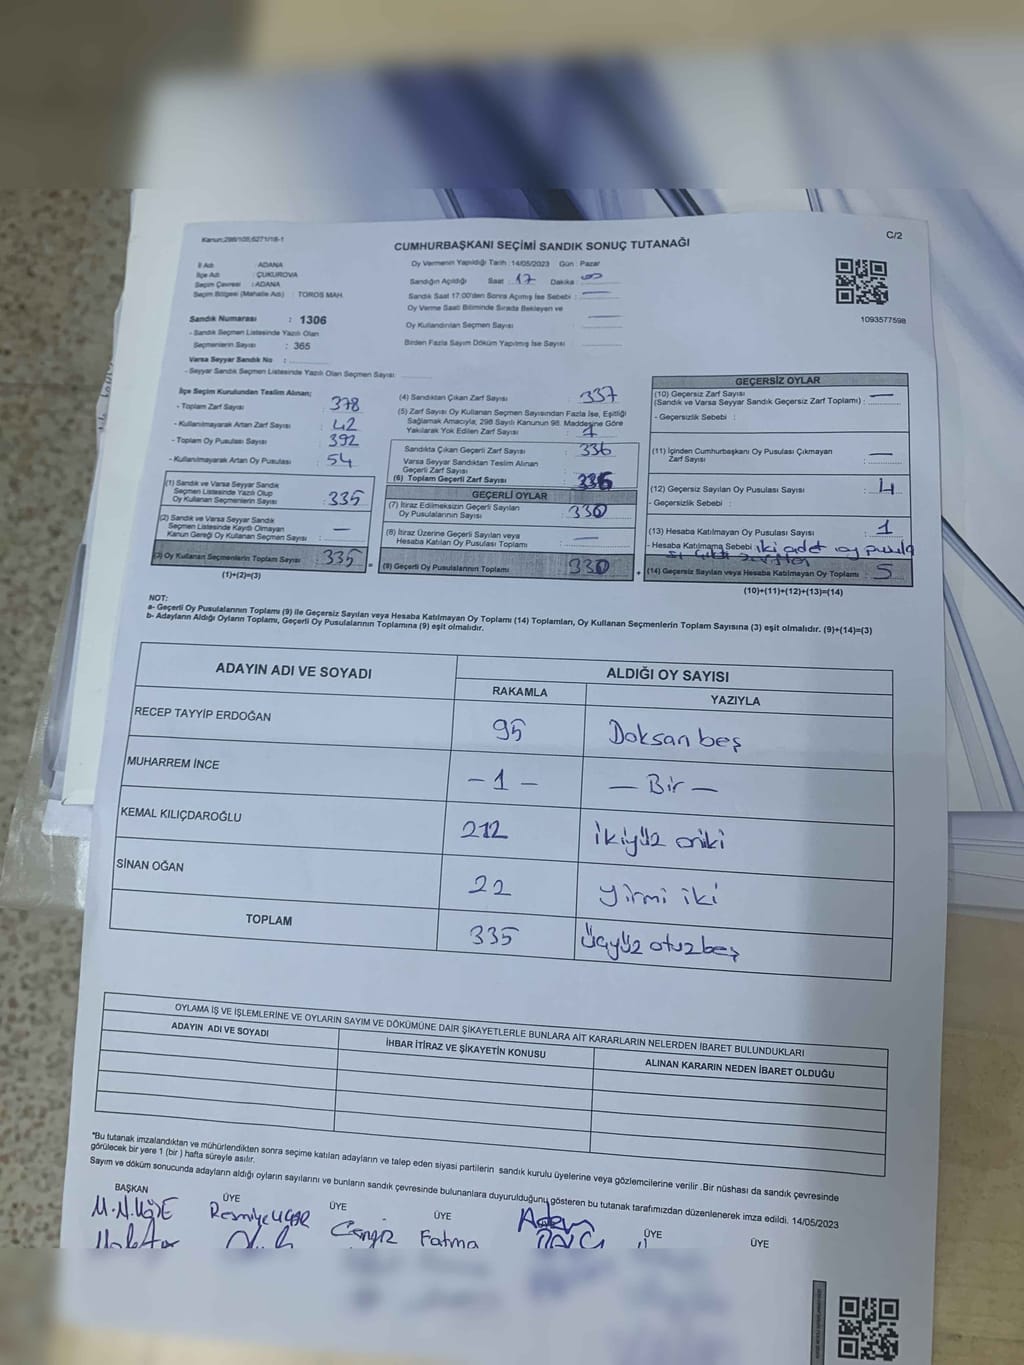 Kanun:298/105;6271/18-1
C/2
CUMHURBAŞKANI SEÇİMİ SANDIK SONUÇ TUTANAĞI
İl Adı : ADANA
İlçe Adı : ÇUKUROVA
Seçim Çevresi : ADANA
Seçim Bölgesi (Mahalle Adı) : TOROS MAH.
Sandık Numarası : 1306
- Sandık Seçmen Listesinde Yazılı Olan
Seçmenlerin Sayısı : 365
Varsa Seyyar Sandık No :
- Seyyar Sandık Seçmen Listesinde Yazılı Olan Seçmen Sayısı
Oy Vermenin Yapıldığı Tarih : 14/05/2023 Gün : Pazar
Sandığın Açıldığı Saat : 17 Dakika : 00
Sandık Saat 17:00'den Sonra Açmış İse Sebebi :
Oy Verme Saati Bitiminde Sırada Bekleyen ve
Oy Kullandırılan Seçmen Sayısı
Birden Fazla Sayım Döküm Yapılmış İse Sayısı
1093577598
İlçe Seçim Kurulundan Teslim Alınan;
- Toplam Zarf Sayısı 378
- Kullanılmayarak Artan Zarf Sayısı : 42
- Toplam Oy Pusulası Sayısı 392
- Kullanılmayarak Artan Oy Pusulası : 54
(1) Sandık ve Varsa Seyyar Sandık
Seçmen Listesinde Yazılı Olup
Oy Kullanan Seçmenlerin Sayısı : 335
(2) Sandık ve Varsa Seyyar Sandık
Seçmen Listesinde Kayıtlı Olmayan
Kanun Gereği Oy Kullanan Seçmen Sayısı : —
(3) Oy Kullanan Seçmenlerin Toplam Sayısı : 335
(1)+(2)=(3)
(4) Sandıktan Çıkan Zarf Sayısı : 337
(5) Zarf Sayısı Oy Kullanan Seçmen Sayısından Fazla İse, Eşitliği
Sağlamak Amacıyla; 298 Sayılı Kanunun 98. Maddesine Göre
Yakılarak Yok Edilen Zarf Sayısı : 1
Sandıkta Çıkan Geçerli Zarf Sayısı : 336
Varsa Seyyar Sandıktan Teslim Alınan
Geçerli Zarf Sayısı
(6) Toplam Geçerli Zarf Sayısı : 336
GEÇERLİ OYLAR
(7) İtiraz Edilmeksizin Geçerli Sayılan
Oy Pusulalarının Sayısı : 330
(8) İtiraz Üzerine Geçerli Sayılan veya
Hesaba Katılan Oy Pusulası Toplamı : —
(9) Geçerli Oy Pusulalarının Toplamı 330
GEÇERSİZ OYLAR
(10) Geçersiz Zarf Sayısı
(Sandık ve Varsa Seyyar Sandık Geçersiz Zarf Toplamı) : —
- Geçersizlik Sebebi :
(11) İçinden Cumhurbaşkanı Oy Pusulası Çıkmayan
Zarf Sayısı : —
(12) Geçersiz Sayılan Oy Pusulası Sayısı : 4
- Geçersizlik Sebebi :
(13) Hesaba Katılmayan Oy Pusulası Sayısı : 1
- Hesaba Katılmama Sebebi : iki adet oy pusula
sı çıktı zarftan
(14) Geçersiz Sayılan veya Hesaba Katılmayan Oy Toplamı : 5
(10)+(11)+(12)+(13)=(14)
NOT:
a- Geçerli Oy Pusulalarının Toplamı (9) ile Geçersiz Sayılan veya Hesaba Katılmayan Oy Toplamı (14) Toplamları, Oy Kullanan Seçmenlerin Toplam Sayısına (3) eşit olmalıdır. (9)+(14)=(3)
b- Adayların Aldığı Oyların Toplamı, Geçerli Oy Pusulalarının Toplamına (9) eşit olmalıdır.
ADAYIN ADI VE SOYADI
ALDIĞI OY SAYISI
RAKAMLA YAZIYLA
RECEP TAYYİP ERDOĞAN 95 Doksan beş
MUHARREM İNCE -1- — Bir —
KEMAL KILIÇDAROĞLU 212 ikiyüz oniki
SİNAN OĞAN 22 yirmi iki
TOPLAM 335 Üçyüz otuzbeş
OYLAMA İŞ VE İŞLEMLERİNE VE OYLARIN SAYIM VE DÖKÜMÜNE DAİR ŞİKAYETLERLE BUNLARA AİT KARARLARIN NELERDEN İBARET BULUNDUKLARI
ADAYIN ADI VE SOYADI İHBAR İTİRAZ VE ŞİKAYETİN KONUSU ALINAN KARARIN NEDEN İBARET OLDUĞU
*Bu tutanak imzalandıktan ve mühürlendikten sonra seçime katılan adayların ve talep eden siyasi partilerin sandık kurulu üyelerine veya gözlemcilerine verilir .Bir nüshası da sandık çevresinde
görülecek bir yere 1 (bir ) hafta süreyle asılır.
Sayım ve döküm sonucunda adayların aldığı oyların sayılarını ve bunların sandık çevresinde bulunanlara duyurulduğunu gösteren bu tutanak tarafımızdan düzenlenerek imza edildi. 14/05/2023
BAŞKAN ÜYE ÜYE ÜYE ÜYE ÜYE
Resmiye UÇAR Cengiz Fatma Adem